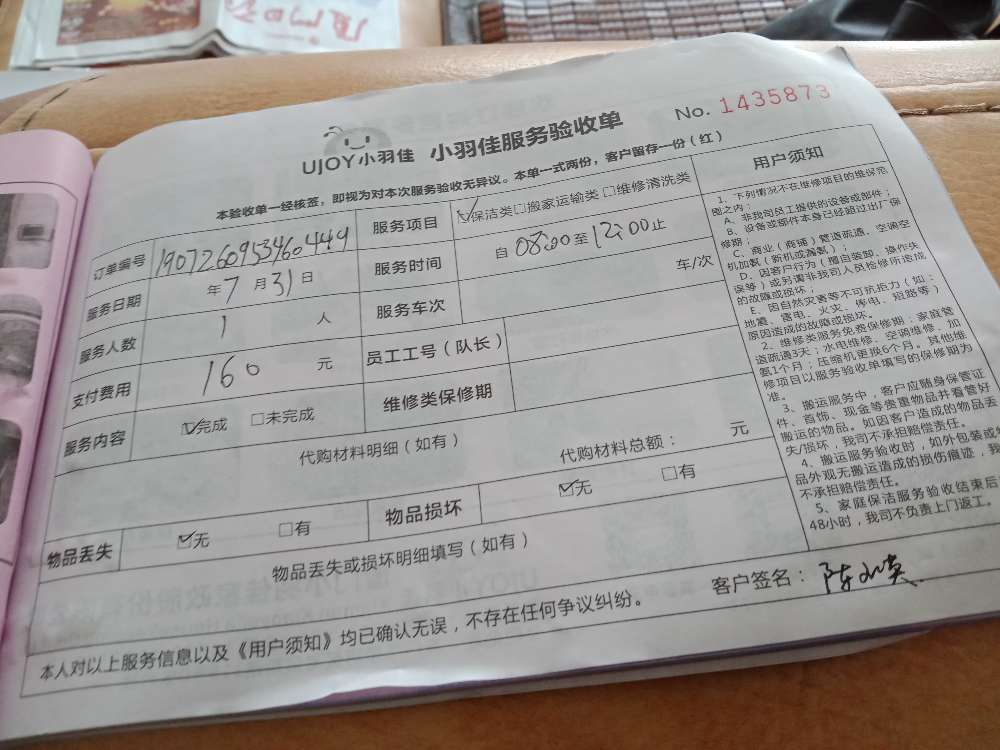 UJOY小羽佳 小羽佳服务验收单
No. 1435873
本验收单一经核签，即视为对本次服务验收无异议。本单一式两份，客户留存一份（红）
订单编号 1907260953460449 服务项目 ☑保洁类□搬家运输类□维修清洗类
服务日期 年7月31日 服务时间 自08:00至12:00止
服务人数 1 人 服务车次 车/次
支付费用 160 元 员工工号（队长）
服务内容 ☑完成 □未完成 维修类保修期
代购材料明细（如有） 代购材料总额： 元
物品丢失 ☑无 □有 物品损坏 ☑无 □有
物品丢失或损坏明细填写（如有）
本人对以上服务信息以及《用户须知》均已确认无误，不存在任何争议纠纷。 客户签名：
用户须知
1、下列情况不在维修项目的维保范
围之内：
A、非我司员工提供的设备或部件；
B、设备或部件本身已经超过出厂保
修期；
C、商业（商铺）管道疏通、空调空
机加氨（新机或漏氨）；
D、因客户行为（擅自装卸、操作失
误等）或另请非我司人员检修所造成
的故障或损坏；
E、因自然灾害等不可抗拒力（如：
地震、雷电、火灾、停电、短路等）
原因造成的故障或损坏。
2、维修类服务免费保修期：家庭管
道疏通3天；水电维修、空调维修、加
氨1个月；压缩机更换6个月。其他维
修项目以服务验收单填写的保修期为
准。
3、搬运服务中，客户应随身保管证
件、首饰、现金等贵重物品并看管好
搬运的物品。如因客户造成的物品丢
失/损坏，我司不承担赔偿责任。
4、搬运服务验收时，如外包装或物
品外观无搬运造成的损伤痕迹，我
不承担赔偿责任。
5、家庭保洁服务验收结束后
48小时，我司不负责上门返工。